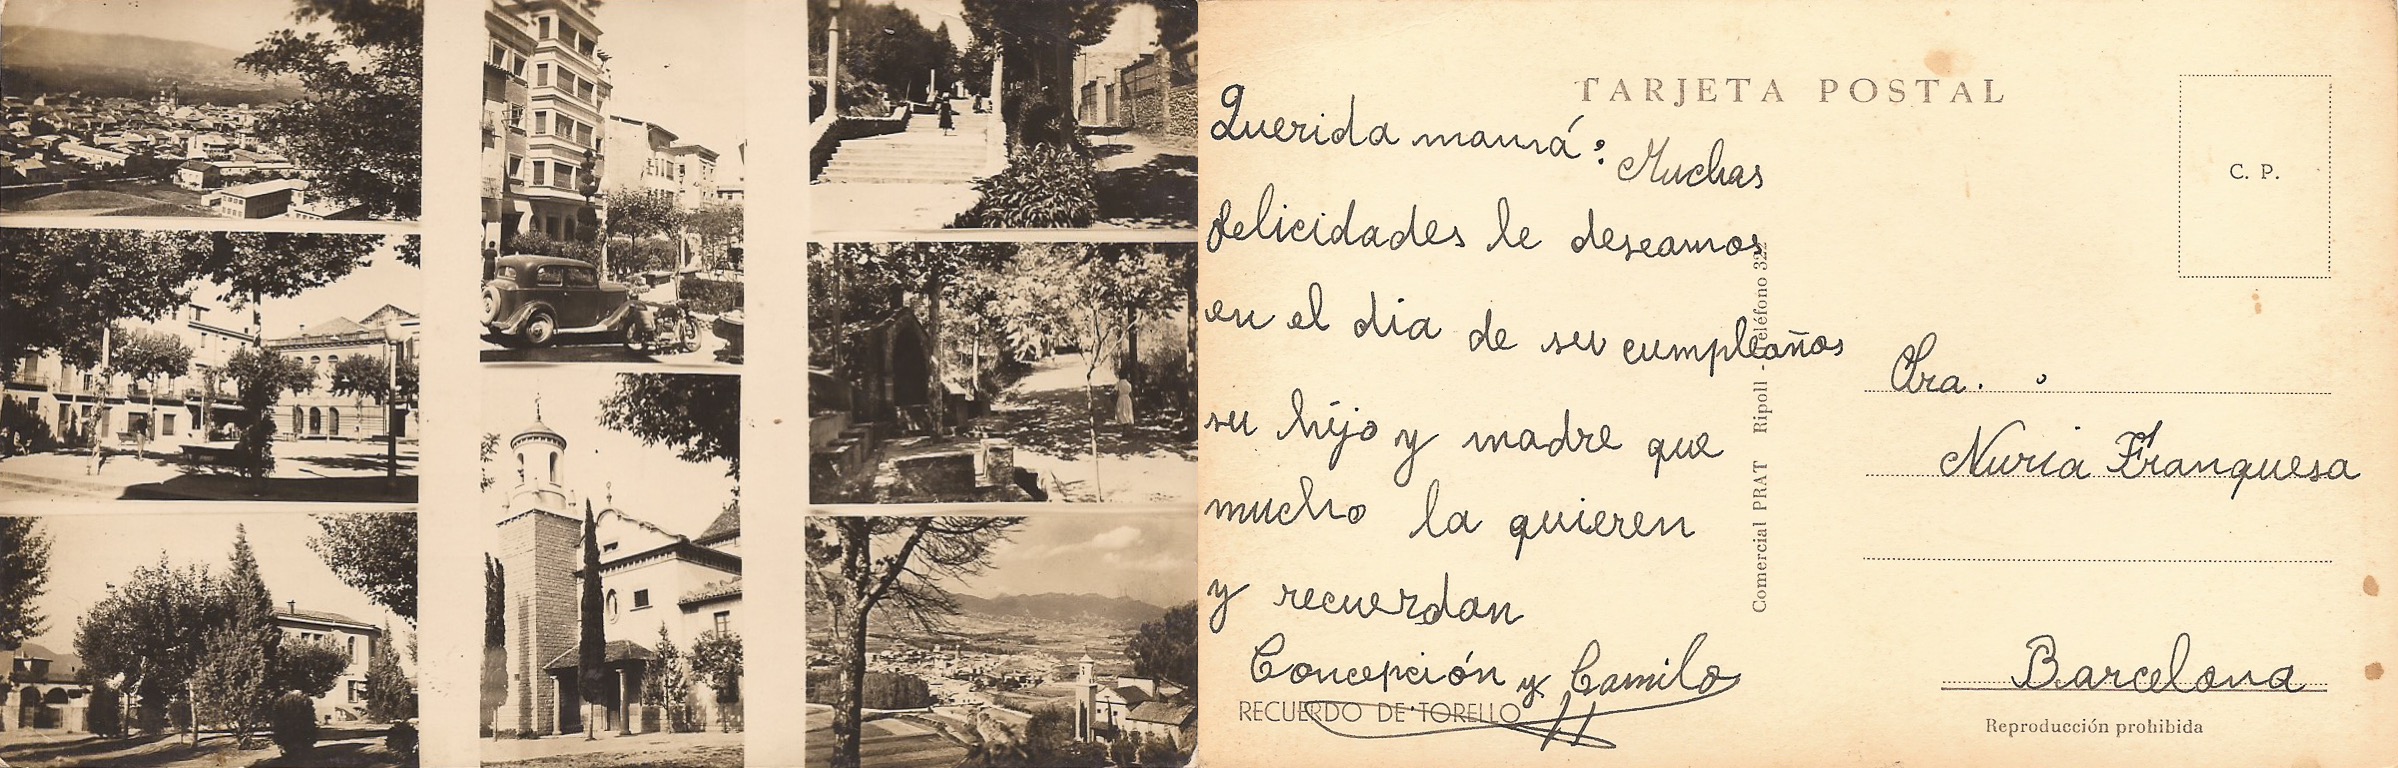 TARJETA POSTAL
C. P.
Querida mamá: Muchas
felicidades le deseamos
en el dia de su cumpleaños
su hijo y madre que
mucho la quieren
y recuerdan
Concepción y Camilo
RECUERDO DE TORELLO
Comercial PRAT Ripoll - Teléfono 322
Sra.
Nuria Franquesa
Barcelona
Reproducción prohibida